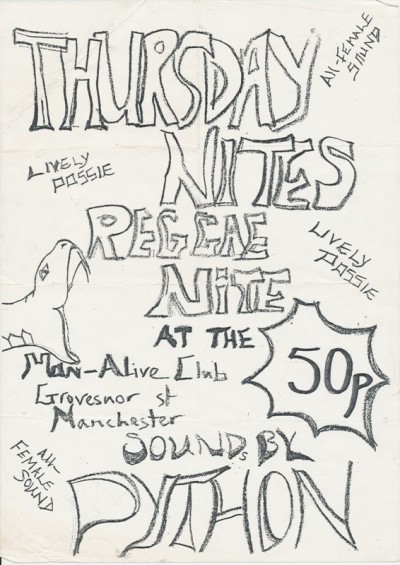 THURSDAY
All-FEMALE
SOUND
NITES
LIVELY
POSSIE
REGGAE
LIVELY
POSSIE
NITE
AT THE
50p
MAN-ALIVE Club
Grovesnor st
Manchester
SOUNDs BY
All-
FEMALE
SOUND
PYTHON